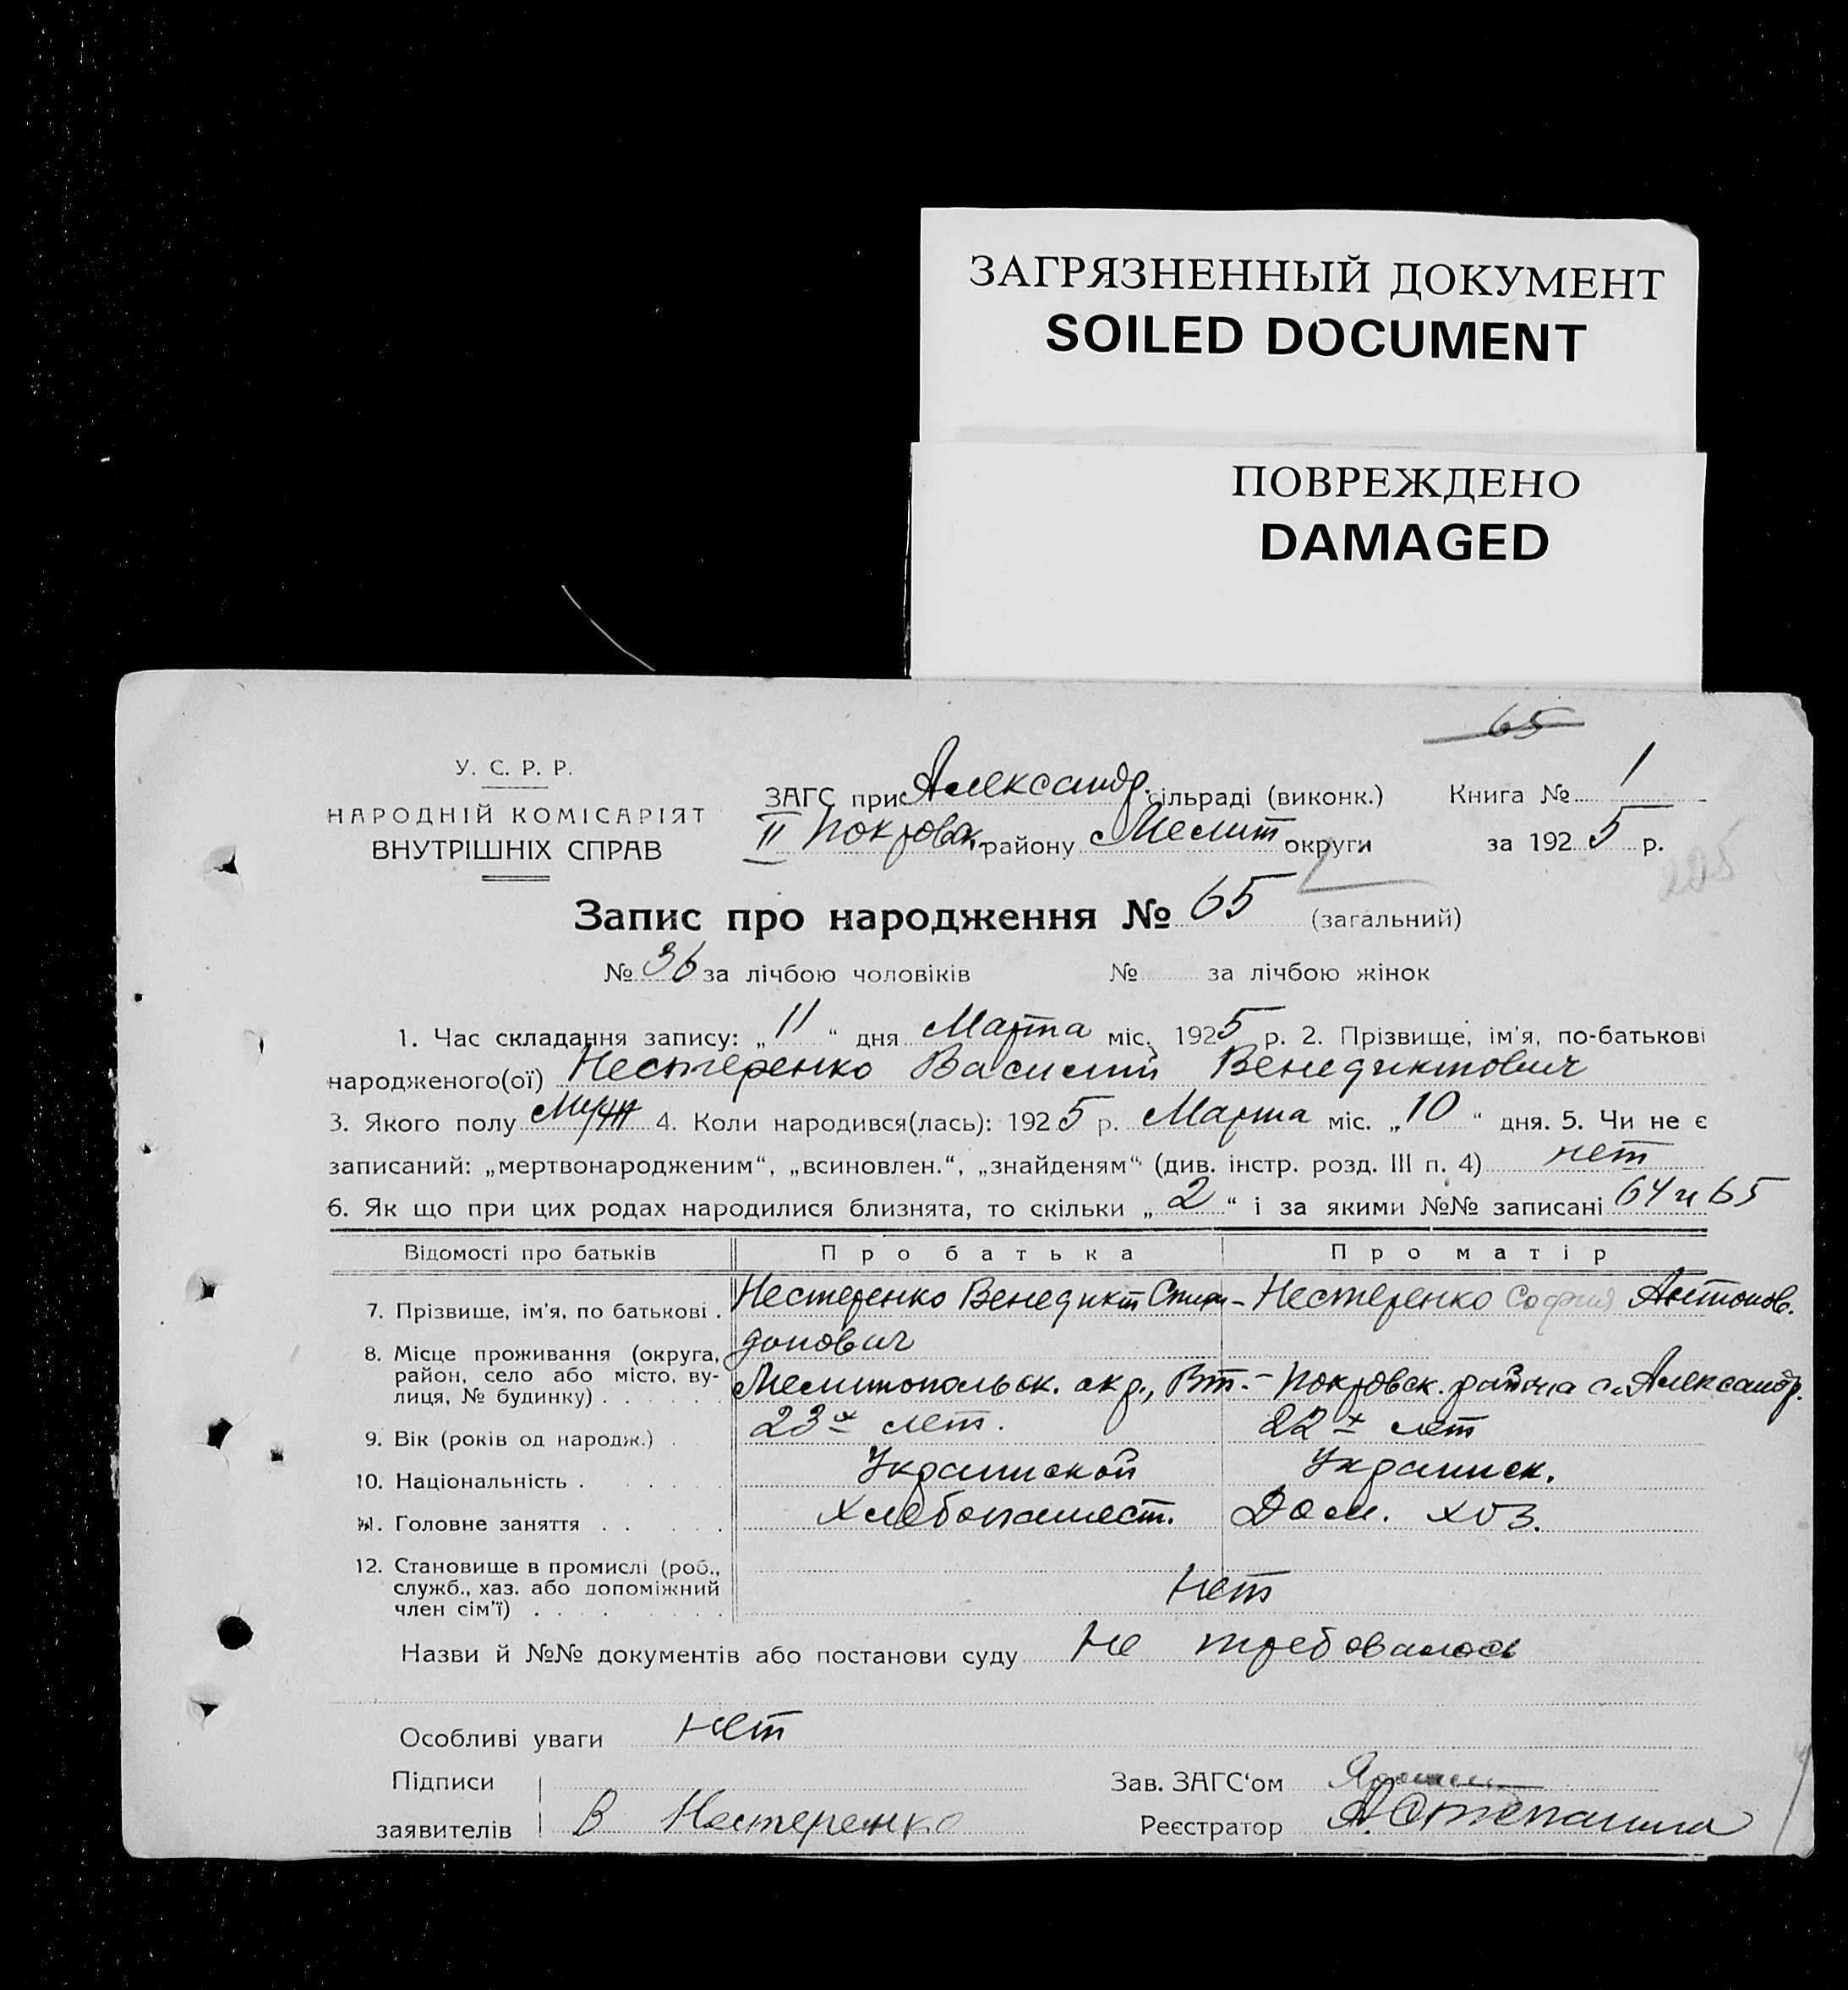 ЗАГРЯЗНЕННЫЙ ДОКУМЕНТ
SOILED DOCUMENT
ПОВРЕЖДЕНО
DAMAGED
65
У. С. Р. Р.
НАРОДНІЙ КОМІСАРІЯТ
ВНУТРІШНІХ СПРАВ
ЗАГС при Александр. сільраді (виконк.) Книга № 1
II Покровск. району Мелит округи за 1925 р.
205
Запис про народження № 65 (загальний)
№ 36 за лічбою чоловіків № за лічбою жінок
1. Час складання запису: „11“ дня Марта міс. 1925 р. 2. Прізвище, ім'я, по-батькові
народженого(ої) Нестеренко Василий Венедиктович
3. Якого полу Муж 4. Коли народився(лась): 1925 р. Марта міс. „10“ дня. 5. Чи не є
записаний: „мертвонародженим“, „всиновлен.“, „знайденям“ (див. інстр. розд. III п. 4) нет
6. Як що при цих родах народилися близнята, то скільки „2“ і за якими №№ записані 64 и 65
Відомості про батьків Про батька Про матір
7. Прізвище, ім'я, по батькові . Нестеренко Венедикт Спири- Нестеренко София Антонов.
донович
8. Місце проживання (округа,
район, село або місто, ву-
лиця, № будинку) . . . . . Мелитопольск. окр., Вт.-Покровск. района с. Александр.
9. Вік (років од народж.) . 23х лет. 22х лет
10. Національність . . . . . Украинской Украинск.
11. Головне заняття . . . . . Хлебопашест. Дом. хоз.
12. Становище в промислі (роб.,
служб., хаз. або допоміжний
член сім'ї) . . . . . . . нет
Назви й №№ документів або постанови суду Не требовалось
Особливі уваги нет
Підписи Зав. ЗАГС'ом
заявителів В Нестеренко Реєстратор А. Степанина